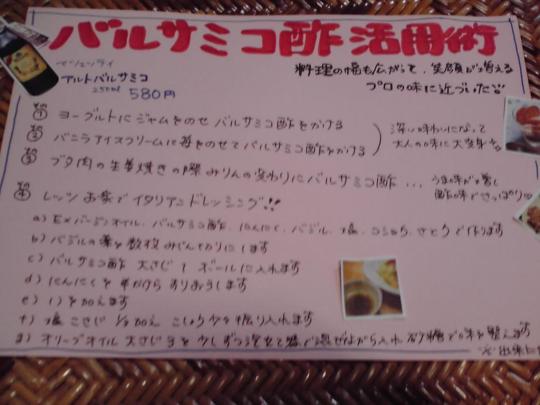 バルサミコ酢 活用術
料理の幅も広がって、笑顔が増える
プロの味に近づいた
アルトバルサミコ
250ml 580円
その① ヨーグルトにジャムをのせ バルサミコ酢をかける
その② バニラアイスクリームに苺をのせてバルサミコ酢をかける
深い味わいになって
大人の味に大変身
その③ ブタ肉の生姜焼きの際みりんの変わりにバルサミコ酢…
うま味が増し
酸味でさっぱり
その④ レッツ お家でイタリアンドレッシング!!
a) EXバージンオイル、バルサミコ酢、にんにく、バジル、塩、コショウ、さとうで作ります
b) バジルの葉を数枚みじん切りにします
c) バルサミコ酢 大さじ1 ボールに入れます
d) にんにくを半かけらすりおろします
e) を加えます
f) 塩 こさじ 1/2加え こしょう少々振り入れます
g) オリーブオイル 大さじ3を少しずつ混ぜながら入れ 砂糖で味を整えます